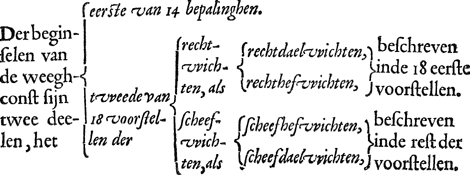 Der begin-
ſelen van
de weegh-
conſt ſijn
twee dee-
len, het
eerſte van 14 bepalinghen.
tweede van
18 voorſtel-
len der
recht-
wich-
ten, als
rechtdaelwichten,
rechthefwichten,
beſchreven
inde 18 eerſte
voorſtellen.
ſcheef-
wich-
ten, als
ſcheefhefwichten,
ſcheefdaelwichten,
beſchreven
inde reſt der
voorſtellen.